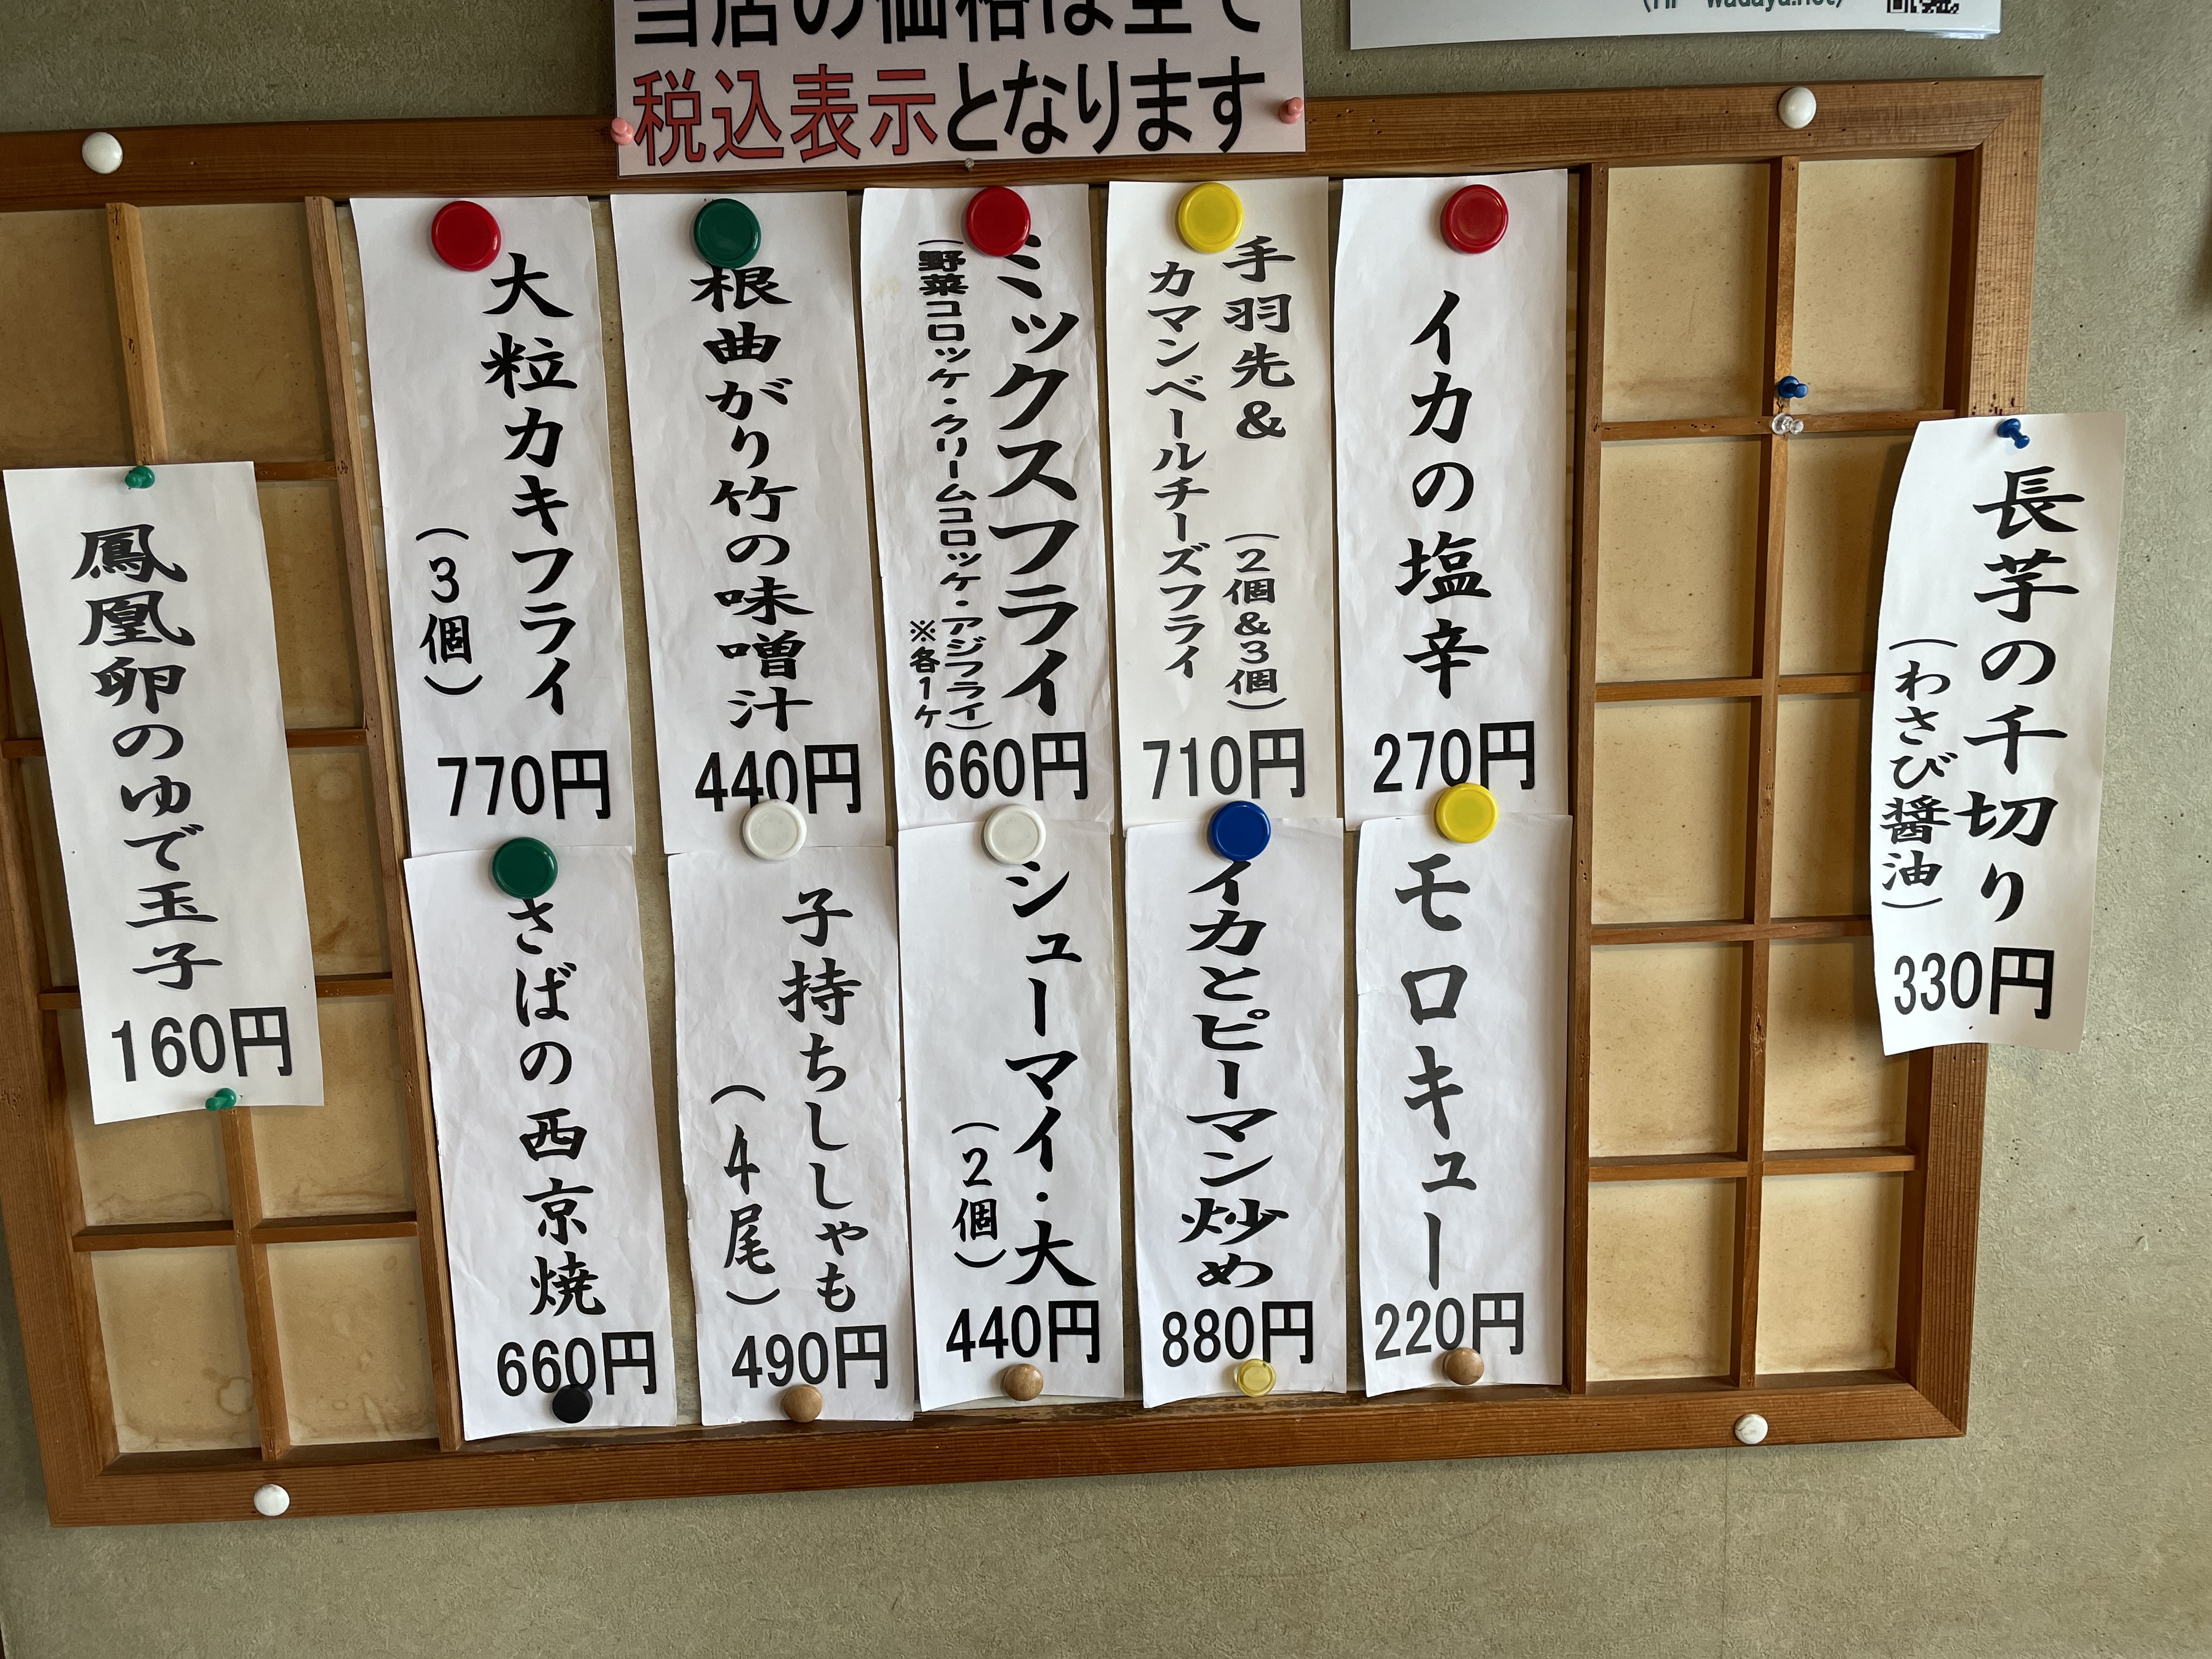 当店の価格は全て
税込表示となります
長芋の千切り
(わさび醤油)
330円
イカの塩辛
270円
手羽先&
(2個&3個)
カマンベールチーズフライ
710円
ミックスフライ
(野菜コロッケ・クリームコロッケ・アジフライ)
※各1ケ
660円
根曲がり竹の味噌汁
440円
大粒カキフライ
(3個)
770円
モロキュー
220円
イカとピーマン炒め
880円
シューマイ・大
(2個)
440円
子持ちししゃも
(4尾)
490円
さばの西京焼
660円
鳳凰卵のゆで玉子
160円